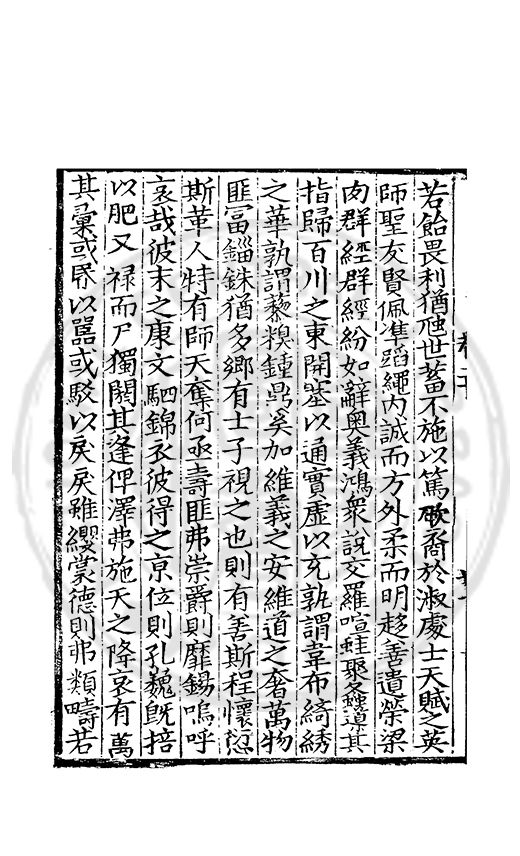 若飴畏利猶虺世蓄不施以篤厥裔於淑處士天賦之英
師聖友賢佩準蹈繩內誠而方外柔而明趍善遺榮梁
肉群經群經紛如辭奧義鴻衆說交羅喧蛙聚導其
指歸百川之東開塞以通實虛以充孰謂韋布綺綉
之華孰謂藜糗鍾鼎奚加維義之安維道之奢萬物
匪富錙銖猶多鄉有士子視之也則有善斯程懷愆
斯革人特有師天奪何亟壽匪弗崇爵則靡錫嗚呼
哀哉彼末之康文駟錦衣彼得之京位則孔巍旣掊
以肥又禄而尸獨闕其逢俾澤弗施天之降哀有萬
其彚或畀以嚚或駁以戾戾雖纓裳德則弗類疇若